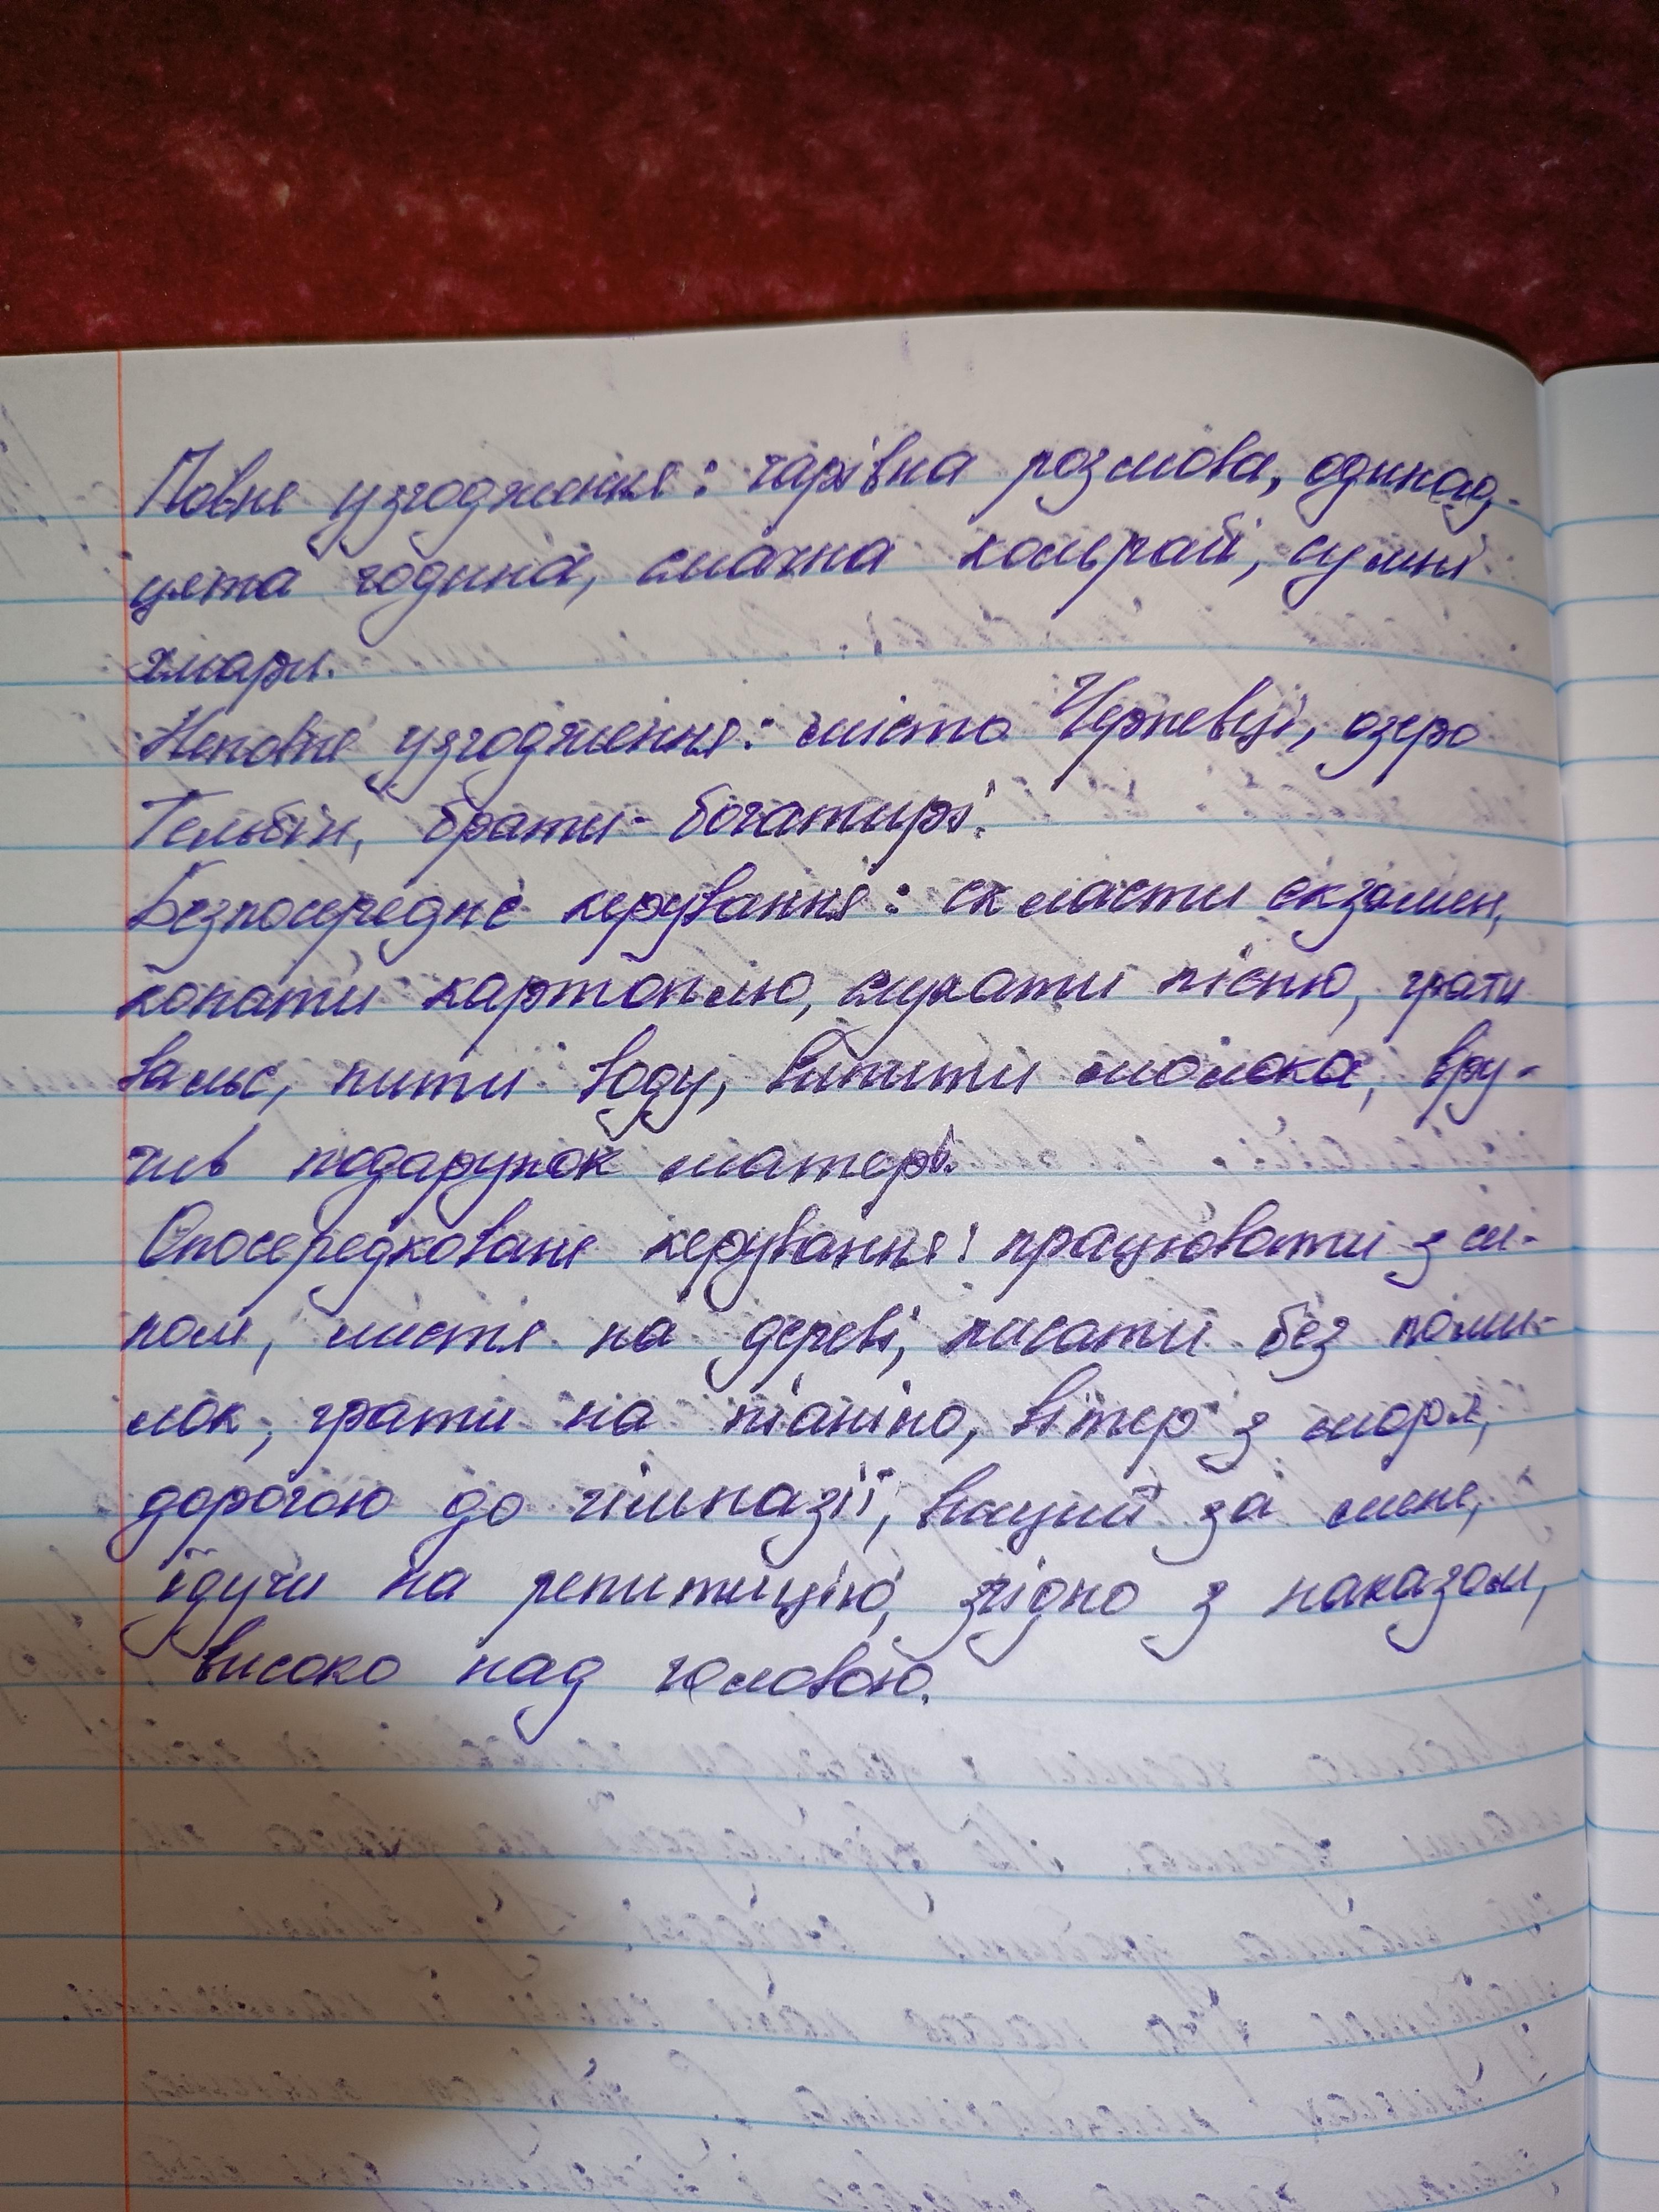 Повне узгодження: чарівна розмова, одинад-
цята година, смачна кольрабі, сумні
хмари.
Неповне узгодження: місто Чернівці, озеро
Тельбін, брати-богатирі.
Безпосереднє керування: скласти екзамен,
копати картоплю, слухати пісню, грати
вальс, пити воду, випити молока, вру-
чив подарунок матері.
Опосередковане керування: працювати з си-
ном, листя на дереві, писати без поми-
лок, грати на піаніно, вітер з моря,
дорогою до гімназії, вищий за мене,
їдучи на репитицію, згідно з наказом,
високо над головою.